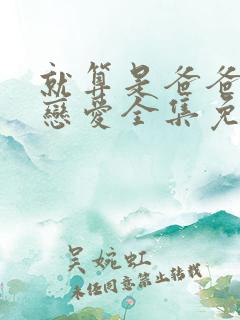 就算是爸爸
戀愛全集免
吴婉虹
未经同意禁止转载